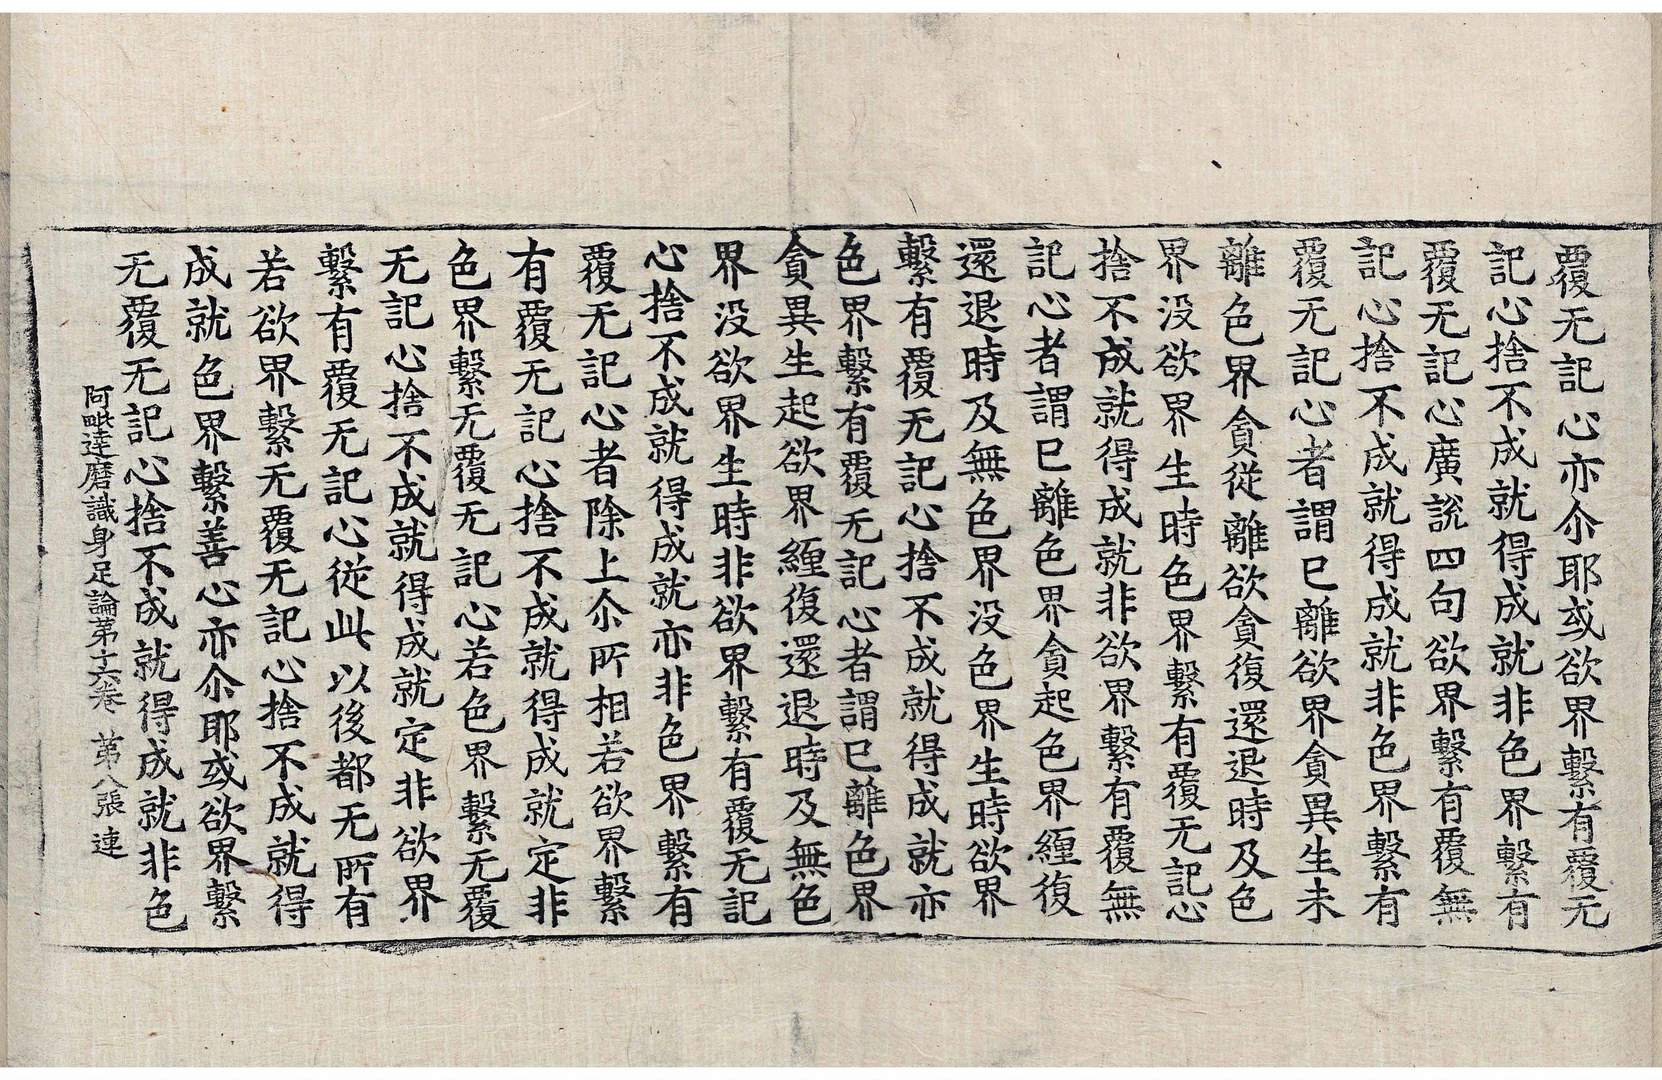 覆无記心亦尒耶或欲界繫有覆无
記心捨不成就得成就非色界繫有
覆无記心廣說四句欲界繫有覆無
記心捨不成就得成就非色界繫有
覆无記心者謂已離欲界貪異生未
離色界貪從離欲貪復還退時及色
界没欲界生時色界繫有覆无記心
捨不成就得成就非欲界繫有覆無
記心者謂已離色界貪起色界纏復
還退時及無色界没色界生時欲界
繫有覆无記心捨不成就得成就亦
色界繫有覆无記心者謂已離色界
貪異生起欲界纏復還退時及無色
界没欲界生時非欲界繫有覆无記
心捨不成就得成就亦非色界繫有
覆无記心者除上尒所相若欲界繫
有覆无記心捨不成就得成就定非
色界繫无覆无記心若色界繫无覆
无記心捨不成就得成就定非欲界
繫有覆无記心從此以後都无所有
若欲界繫无覆无記心捨不成就得
成就色界繫善心亦尒耶或欲界繫
无覆无記心捨不成就得成就非色
阿毗達磨識身足論苐十六卷 苐八張 連